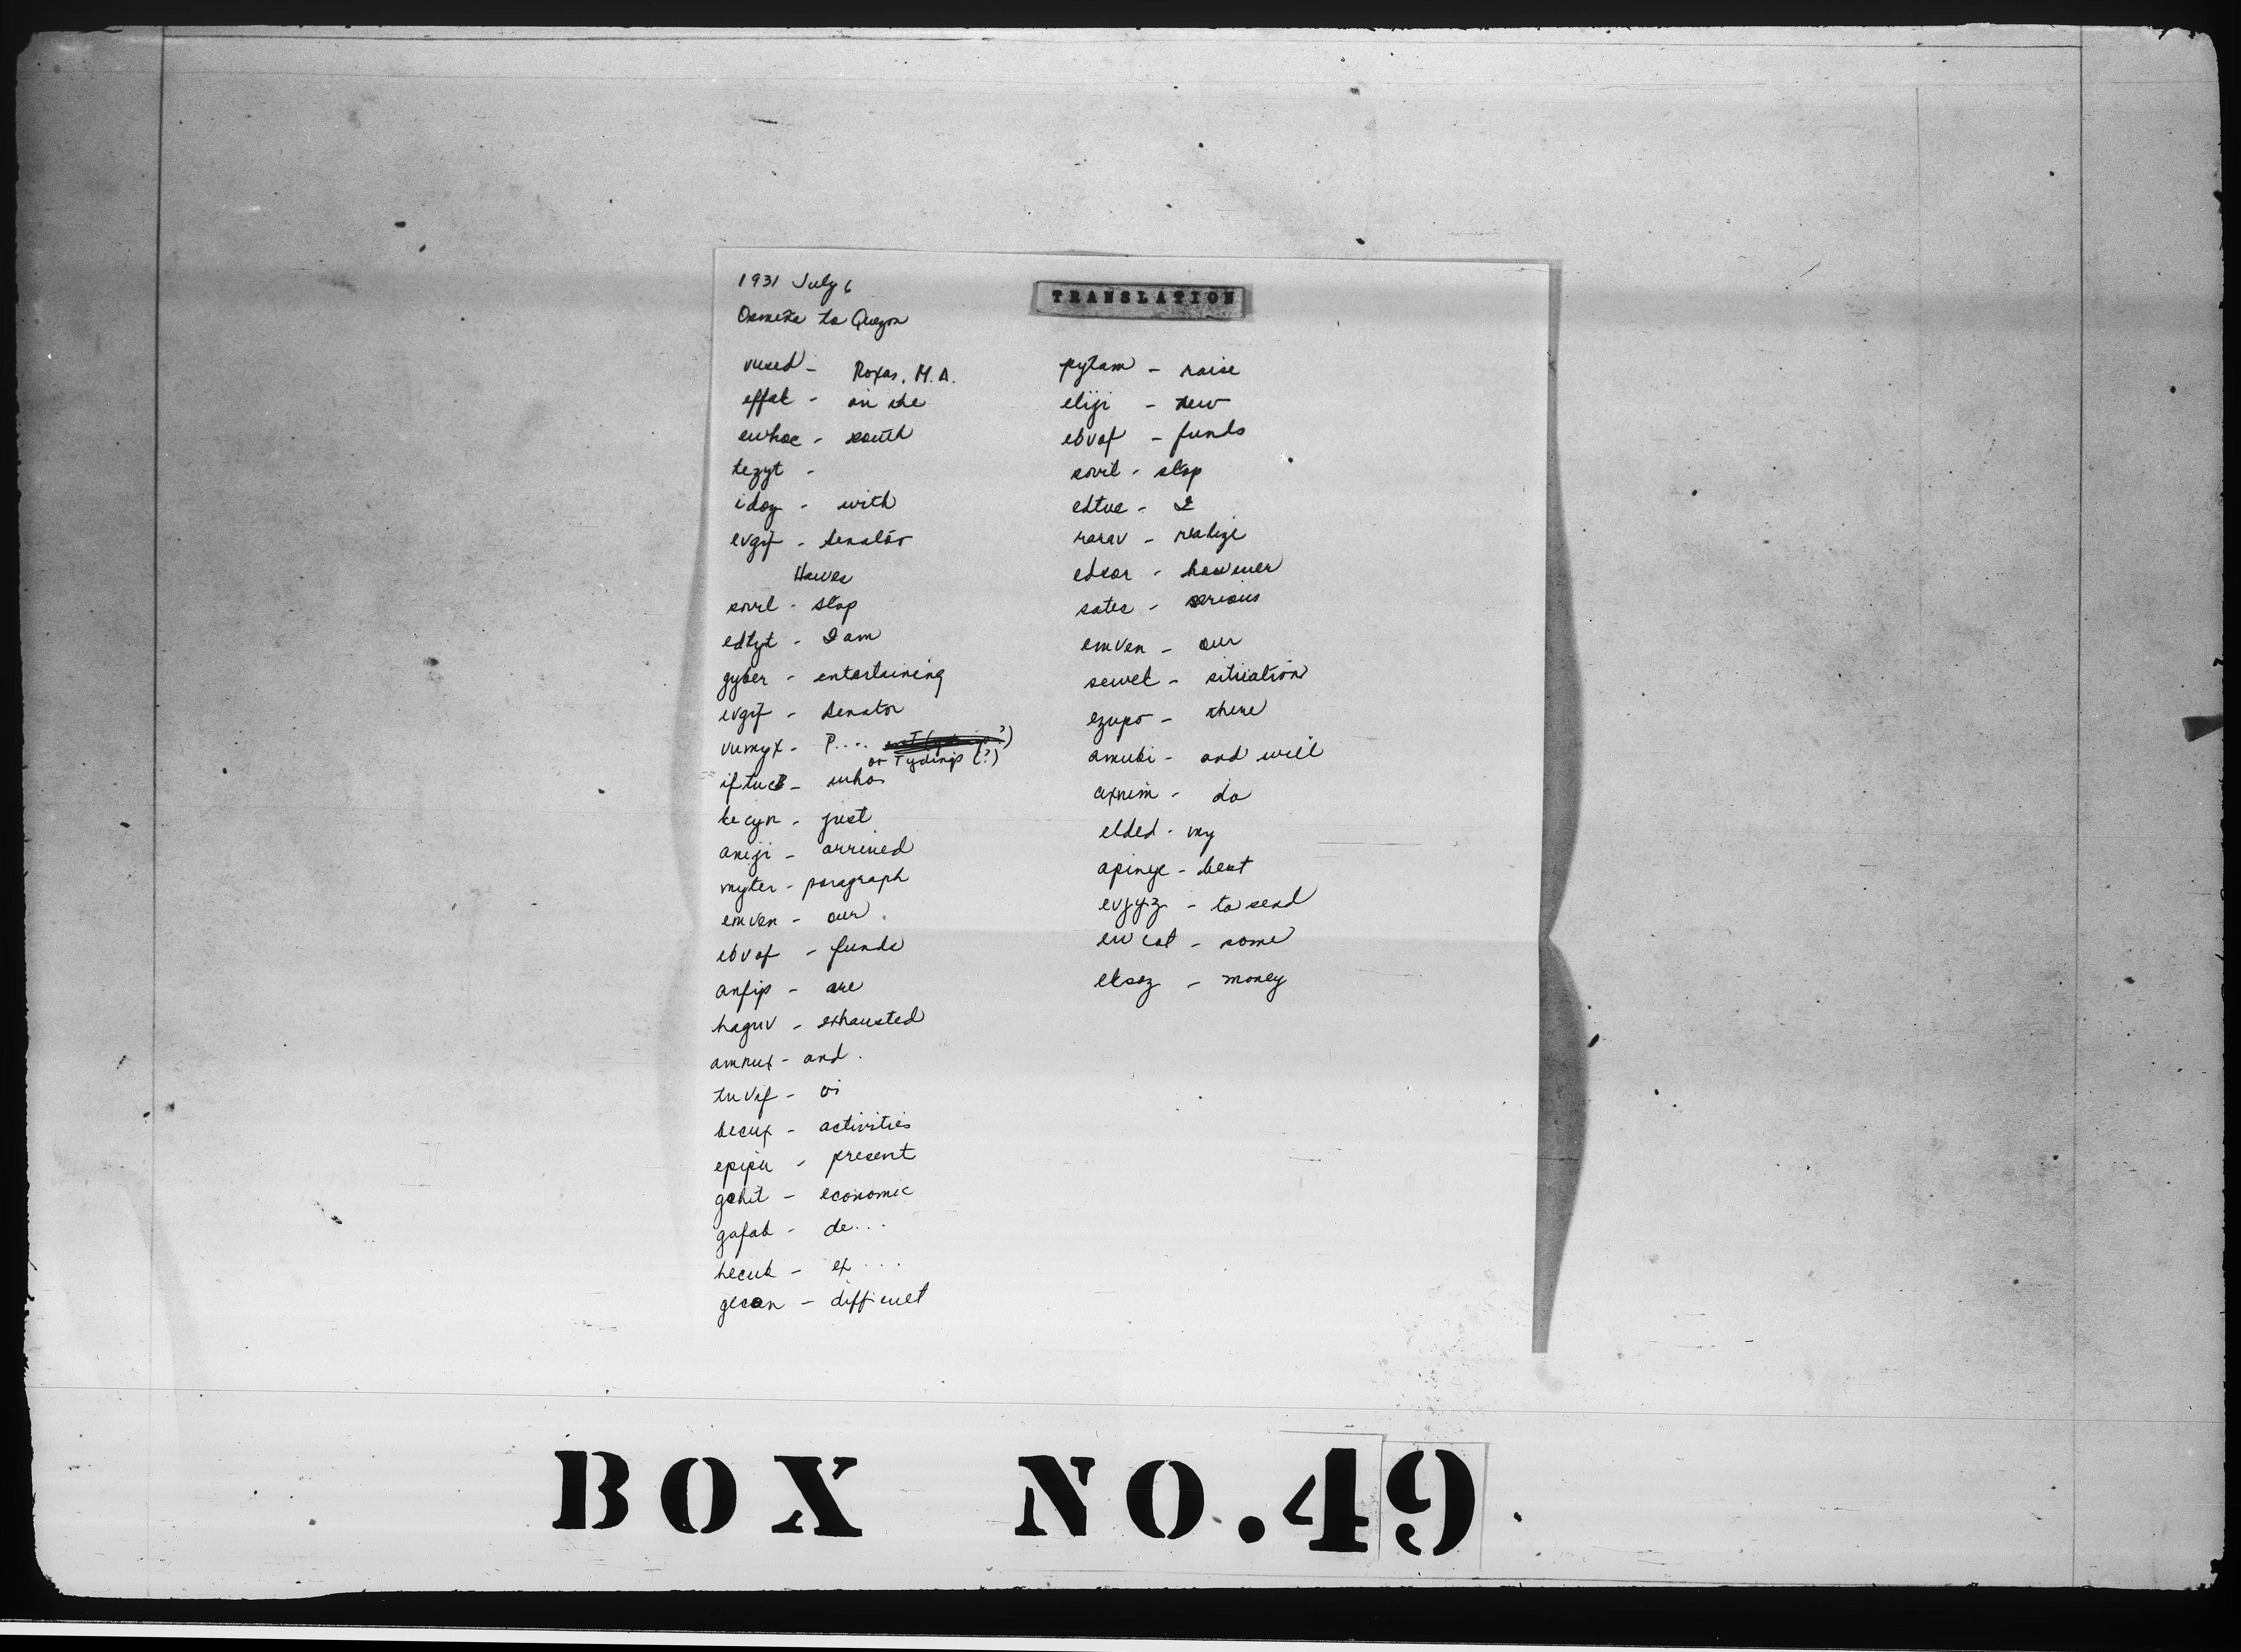 1931 July 6
TRANSLATION
Osmeña to Quezon
vused - Roxas, M.A.
effat - on the
ewhoc - south
tezyt -
idoz - with
evgif - Senator
Hawes
sovil - stop
edtyt - I am
gyber - entertaining
evgif - Senator
vumyx - P....
or Tydings (?)
iftuc - who
kecyn - just
aneji - arrived
myter - paragraph
emven - our
ebvof - funds
anfip - are
haguv - exhausted
amnux - and
tuvif - oi
becux - activities
epipu - present
gehit - economic
gafab - de...
hecub - ex....
gecan - difficult
pytam - raise
eliji - new
ebvof - funds
sovil - stop
edtue - I
rarav - realize
edsor - however
satec - serious
emven - our
sewel - situation
ezupo - there
amubi - and will
axnim - do
elded - my
apinyc - best
evjyz - to send
ewcot - some
eksoz - money
BOX NO. 49